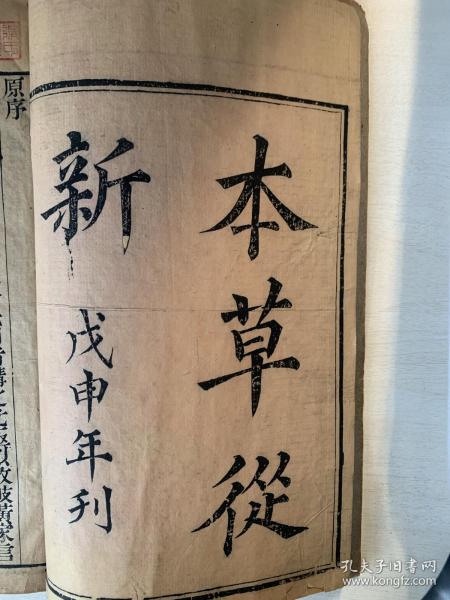 本草從
新
戊申年刊
原序
孔夫子旧书网
www.kongfz.com